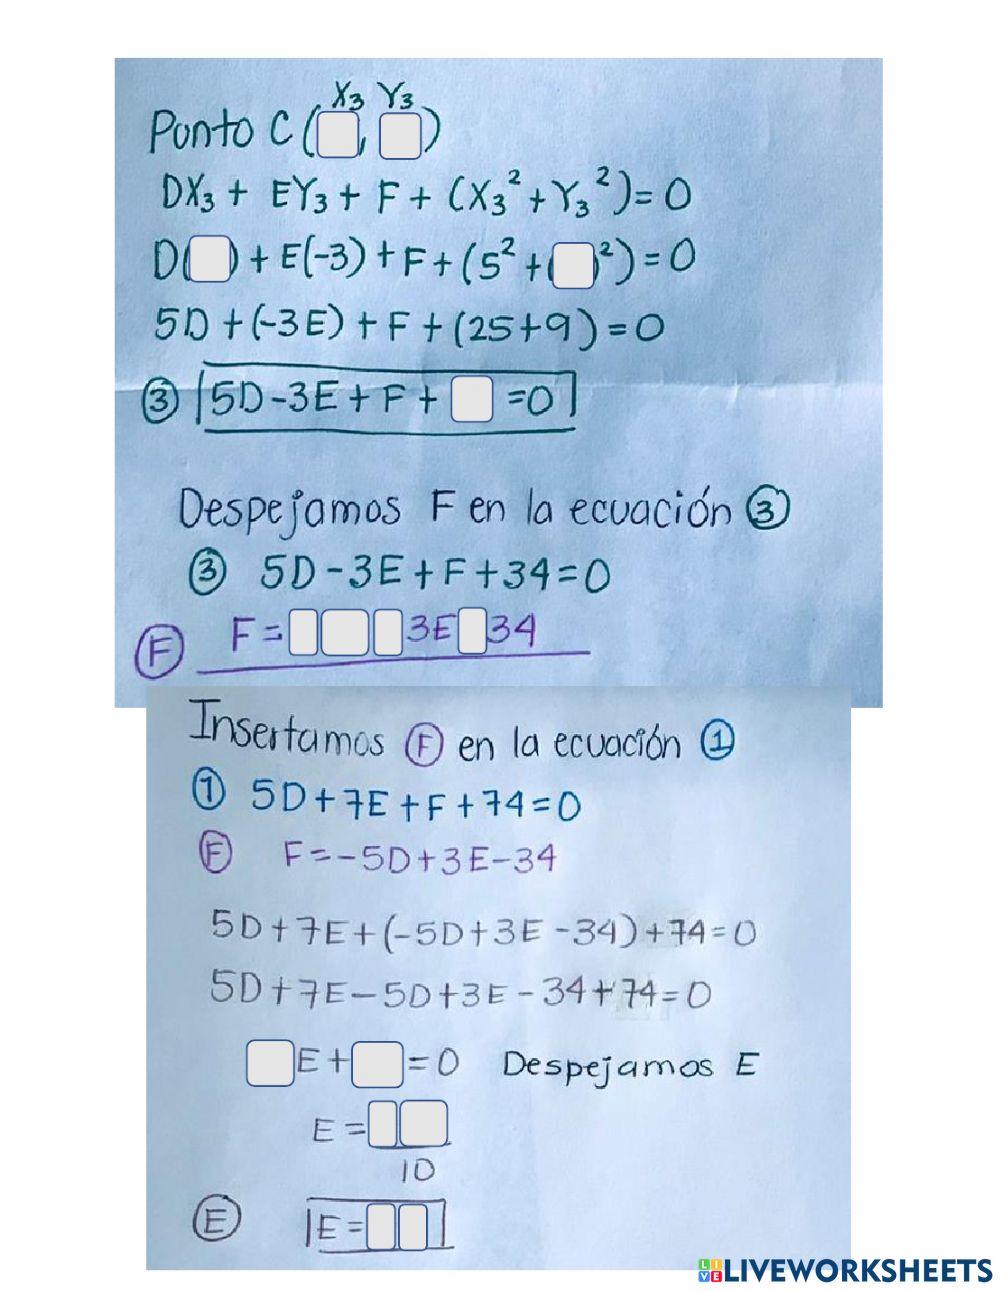 X₃ Y₃
Punto C ( , )
DX₃ + EY₃ + F + (X₃² + Y₃²) = 0
D( ) + E(-3) + F + (5² + ( )²) = 0
5D + (-3E) + F + (25+9) = 0
③ 5D - 3E + F + = 0
Despejamos F en la ecuación ③
③ 5D - 3E + F + 34 = 0
Ⓕ F = 3E 34
Insertamos Ⓕ en la ecuación ①
① 5D + 7E + F + 74 = 0
Ⓕ F = -5D + 3E - 34
5D + 7E + (-5D + 3E - 34) + 74 = 0
5D + 7E - 5D + 3E - 34 + 74 = 0
E + = 0 Despejamos E
E =
10
Ⓔ E =
LIVE LIVEWORKSHEETS